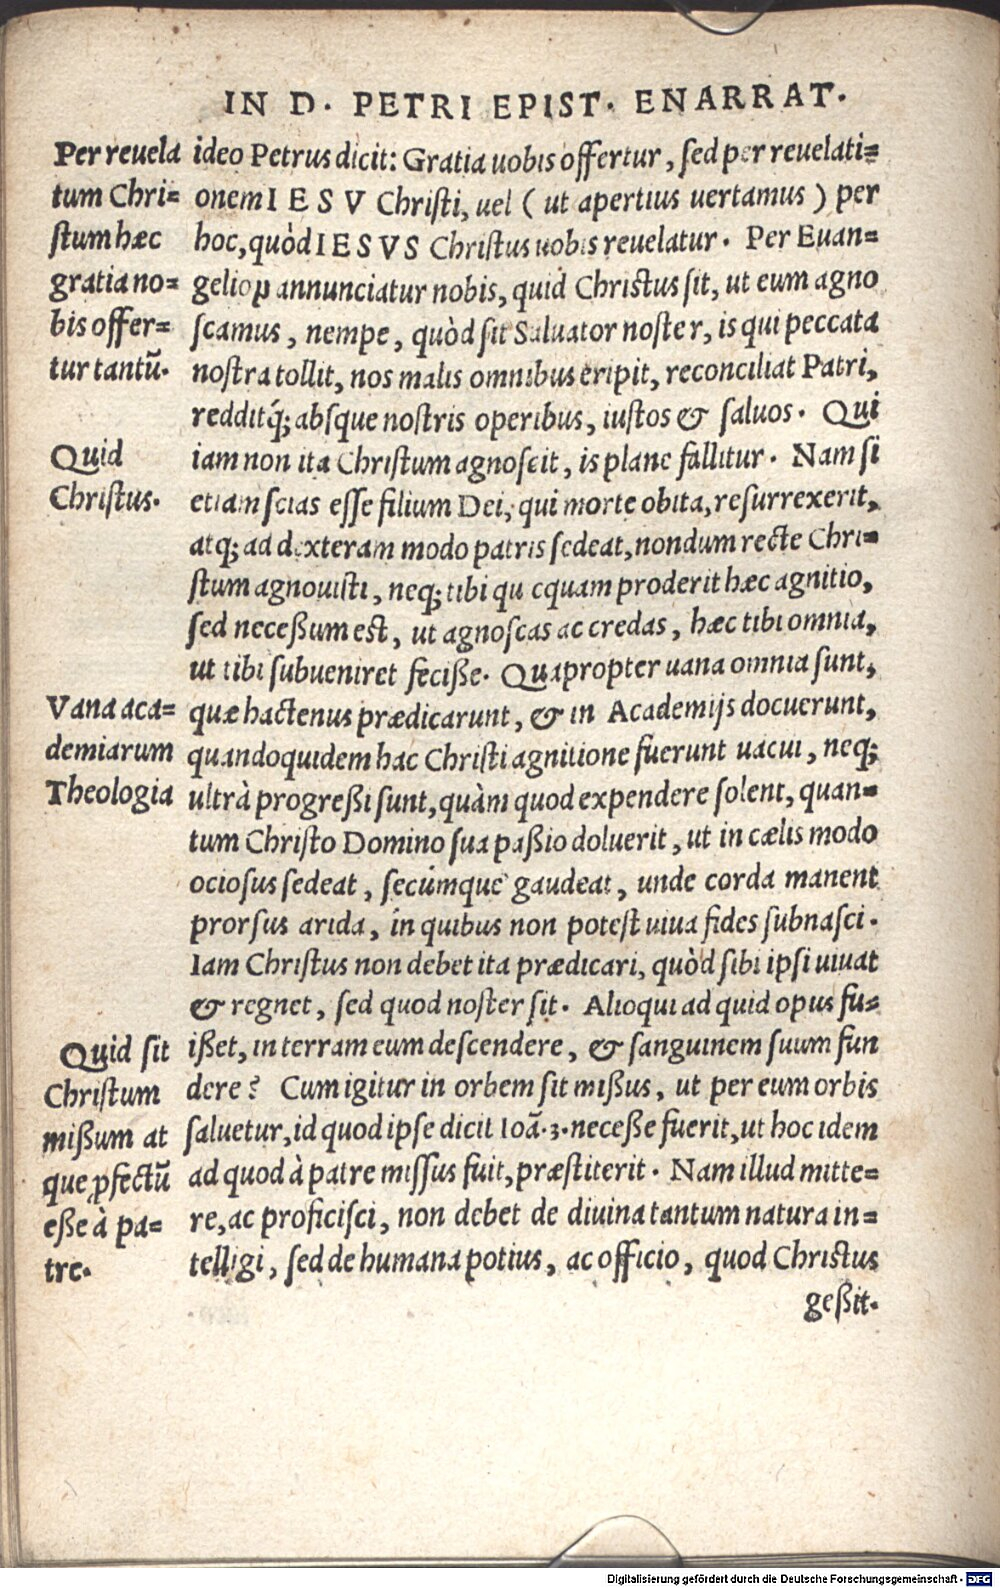 IN D. PETRI EPIST. ENARRAT.
Per reuela
tum Chri=
stum hæc
gratia no=
bis offer=
tur tantũ.
ideo Petrus dicit: Gratia uobis offertur, sed per reuelati=
onem IESV Christi, uel (ut apertius uertamus) per
hoc, quòd IESVS Christus uobis reuelatur. Per Euan=
gelioƿ annunciatur nobis, quid Christus sit, ut eum agno
scamus, nempe, quòd sit Saluator noster, is qui peccata
nostra tollit, nos malis omnibus eripit, reconciliat Patri,
redditq́; absque nostris operibus, iustos & saluos. Qui
Quid
Christus.
iam non ita Christum agnoscit, is plane fallitur. Nam si
etiam scias esse filium Dei, qui morte obita, resurrexerit,
atq; ad dexteram modo patris sedeat, nondum recte Chri=
stum agnouisti, neq; tibi quicquam proderit hæc agnitio,
sed neceßum est, ut agnoscas ac credas, hæc tibi omnia,
ut tibi subueniret feciße. Quapropter uana omnia sunt,
Vana aca=
demiarum
Theologia
quæ hactenus prædicarunt, & in Academijs docuerunt,
quandoquidem hac Christi agnitione fuerunt uacui, neq;
ultrà progreßi sunt, quàm quod expendere solent, quan=
tum Christo Domino sua paßio doluerit, ut in cælis modo
ociosus sedeat, secúmque gaudeat, unde corda manent
prorsus arida, in quibus non potest uiua fides subnasci.
Iam Christus non debet ita prædicari, quòd sibi ipsi uiuat
& regnet, sed quod noster sit. Alioqui ad quid opus fu=
Quid sit
Christum
mißum at
que ꝓfectũ
eße à pa=
tre.
ißet, in terram eum descendere, & sanguinem suum fun
dere? Cum igitur in orbem sit mißus, ut per eum orbis
saluetur, id quod ipse dicit Ioã. 3. neceße fuerit, ut hoc idem
ad quod à patre missus fuit, præstiterit. Nam illud mitte=
re, ac proficisci, non debet de diuina tantum natura in=
telligi, sed de humana potius, ac officio, quod Christus
geßit.
Digitalisierung gefördert durch die Deutsche Forschungsgemeinschaft - DFG